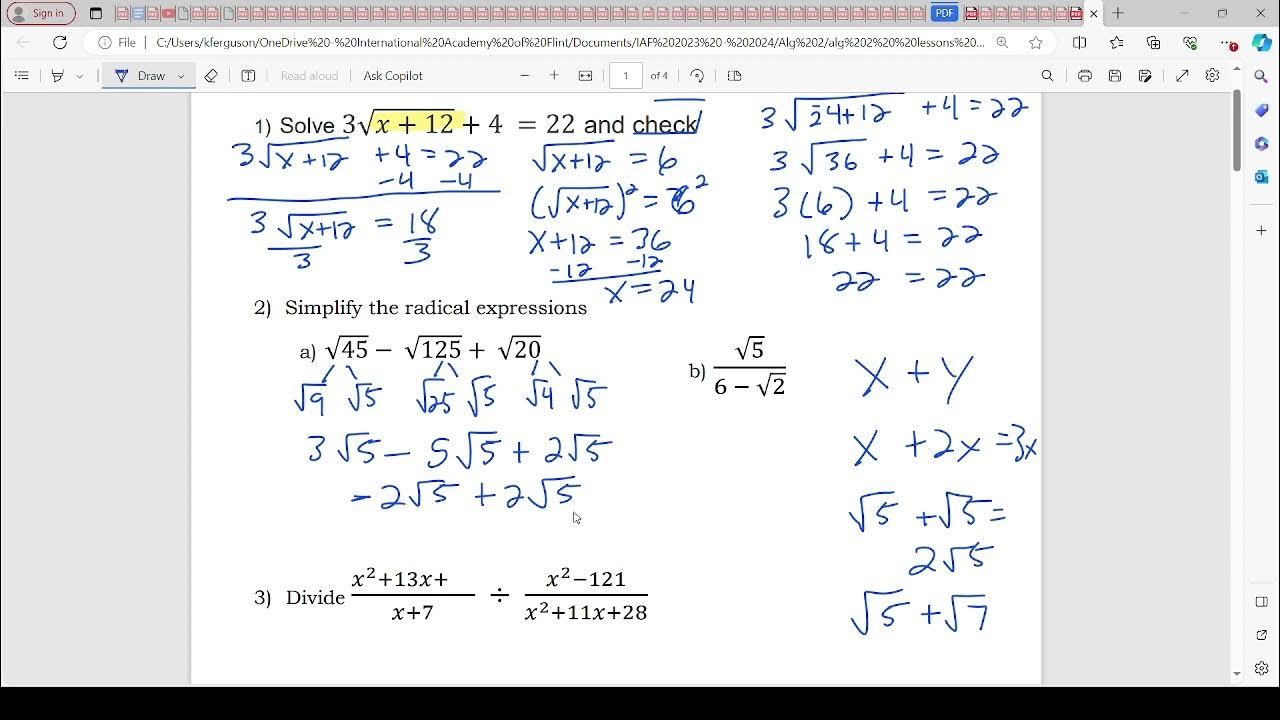 Sign in
PDF
File
C:/Users/kferguson/OneDrive%20-%20International%20Academy%20of%20Flint/Documents/IAF%202023%20-%202024/Alg%202/alg%202%20%20lessons%20...
Draw
Read aloud
Ask Copilot
1 of 4
1) Solve 3√(x + 12) + 4 = 22 and check
3√(x+12) +4 = 22
-4 -4
3√(x+12) = 18
3 3
√(x+12) = 6
(√(x+12))² = 6²
x+12 = 36
-12 -12
x = 24
3√(24+12) +4 = 22
3√36 +4 = 22
3(6) +4 = 22
18+4 = 22
22 = 22
2) Simplify the radical expressions
a) √45 − √125 + √20
√9 √5 √25 √5 √4 √5
3√5 − 5√5 + 2√5
-2√5 + 2√5
b) √5
6 − √2
x + y
x + 2x = 3x
√5 + √5 =
2√5
√5 + √7
3) Divide x²+13x+ ÷ x²−121
x+7 x²+11x+28